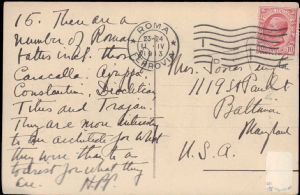 15. There are a
number of Roman
Baths incl. those
Caracalla, Agrippa
Constantine, Diocletian
Titus and Trajan.
They are more interesting
to an architect for what
they were than to a
tourist for what they
are.
ROMA
23-24
11 IV
1913
FERROVIA
Mrs. Jones
1119 St Paul St
Baltimore
Maryland
U.S.A.